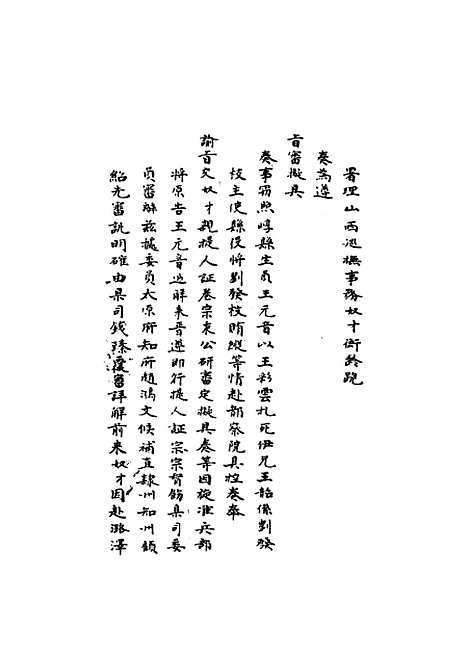 署理山西巡撫事務奴才衡齡跪
奏為遵
旨審擬具
奏事竊照崞縣生員王元音以王彩雲扎死伊兄王韶係劉發
枝主使縣役將劉發枝賄縱等情赴都察院具控奏奉
諭旨交奴才親提人証卷宗秉公研審定擬具奏等因旋准兵部
將原告王元音逓解来晋遵即行提人証宗宗督飭臬司委
員審辦兹據委員太原府知府趙鴻文候補直隸州知州顧
紹先審訊明確由臬司錢臻覆審詳解前来奴才因赴潞澤